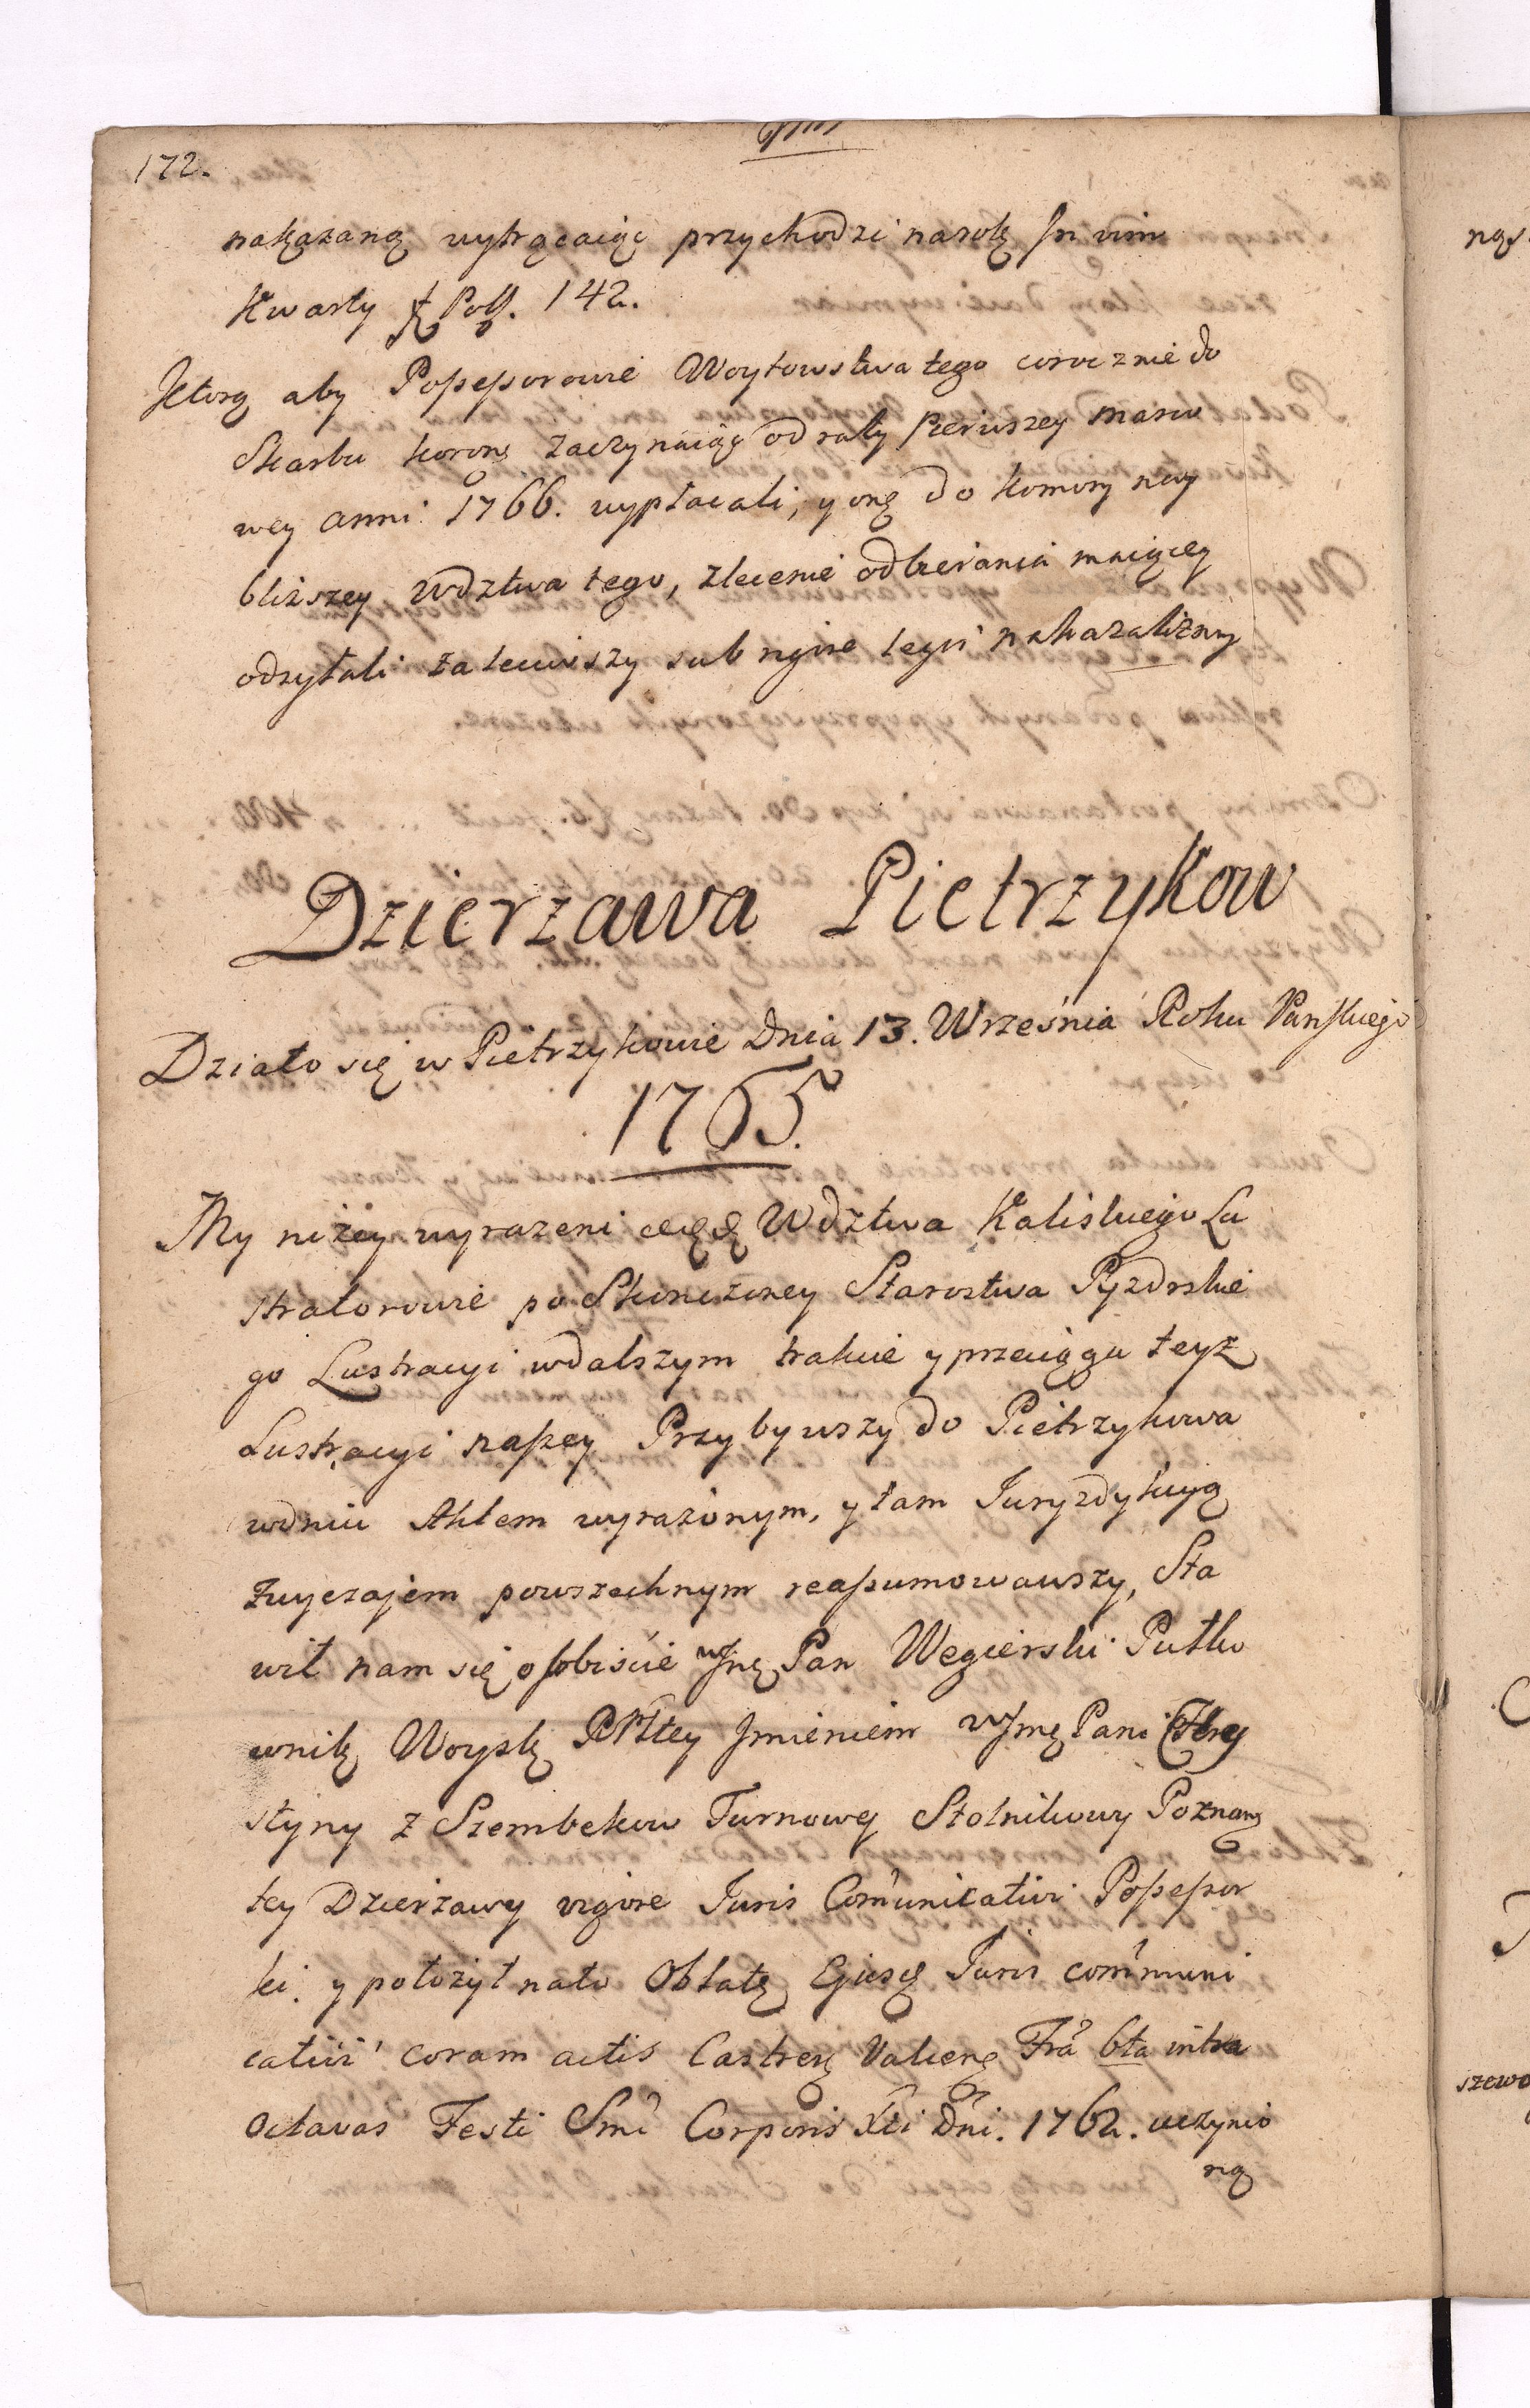 172.
nakazaną wytrącaiąc przychodzi na rok In vim
Kwarty f Pols. 142.
Ktorą aby Possessorowie Woytowstwa tego corocznie do
Skarbu koron zaczynaiąc od raty Pierwszey Marco
wey anni 1766. wypłacali, y onę do Komory nay
bliższey Wdztwa tego, zlecenie odbierania maiącey
odsyłali zaleciwszy sub rigore legis nakazaliśmy
Dzierzawa Pietrzykow
Działo się w Pietrzykowie Dnia 13. Września Roku Pańskiego
1765.
My niżey wyrazeni Wdztwa Kaliskiego Lu
stratorowie po Skonczoney Starostwa Pyzdrskie
go Lustracyi w dalszym trakcie y przeciągu teyz
Lustracyi naszey Przybywszy do Pietrzykowa
w dniu Aktem wyrażonym, y tam Juryzdykcyą
zwyczajem powszechnym reassumowawszy, Sta
wił nam się osobiście WJmę Pan Węgierski Pułko
wnik Woysk RPltey Jmieniem WJmę Pani
styny z Szembekow Turnowey Stolnikowy Poznans
tey Dzierżawy vigore Juris Com̃unicativi Possessor
ki. y położył nato Oblatę Ejusd Juris com̃muni
cativi coram actis Castren Valcen Fra 6ta intra
Octavas Festi Smi Corporis Xti Dni. 1762. uczynio
ną